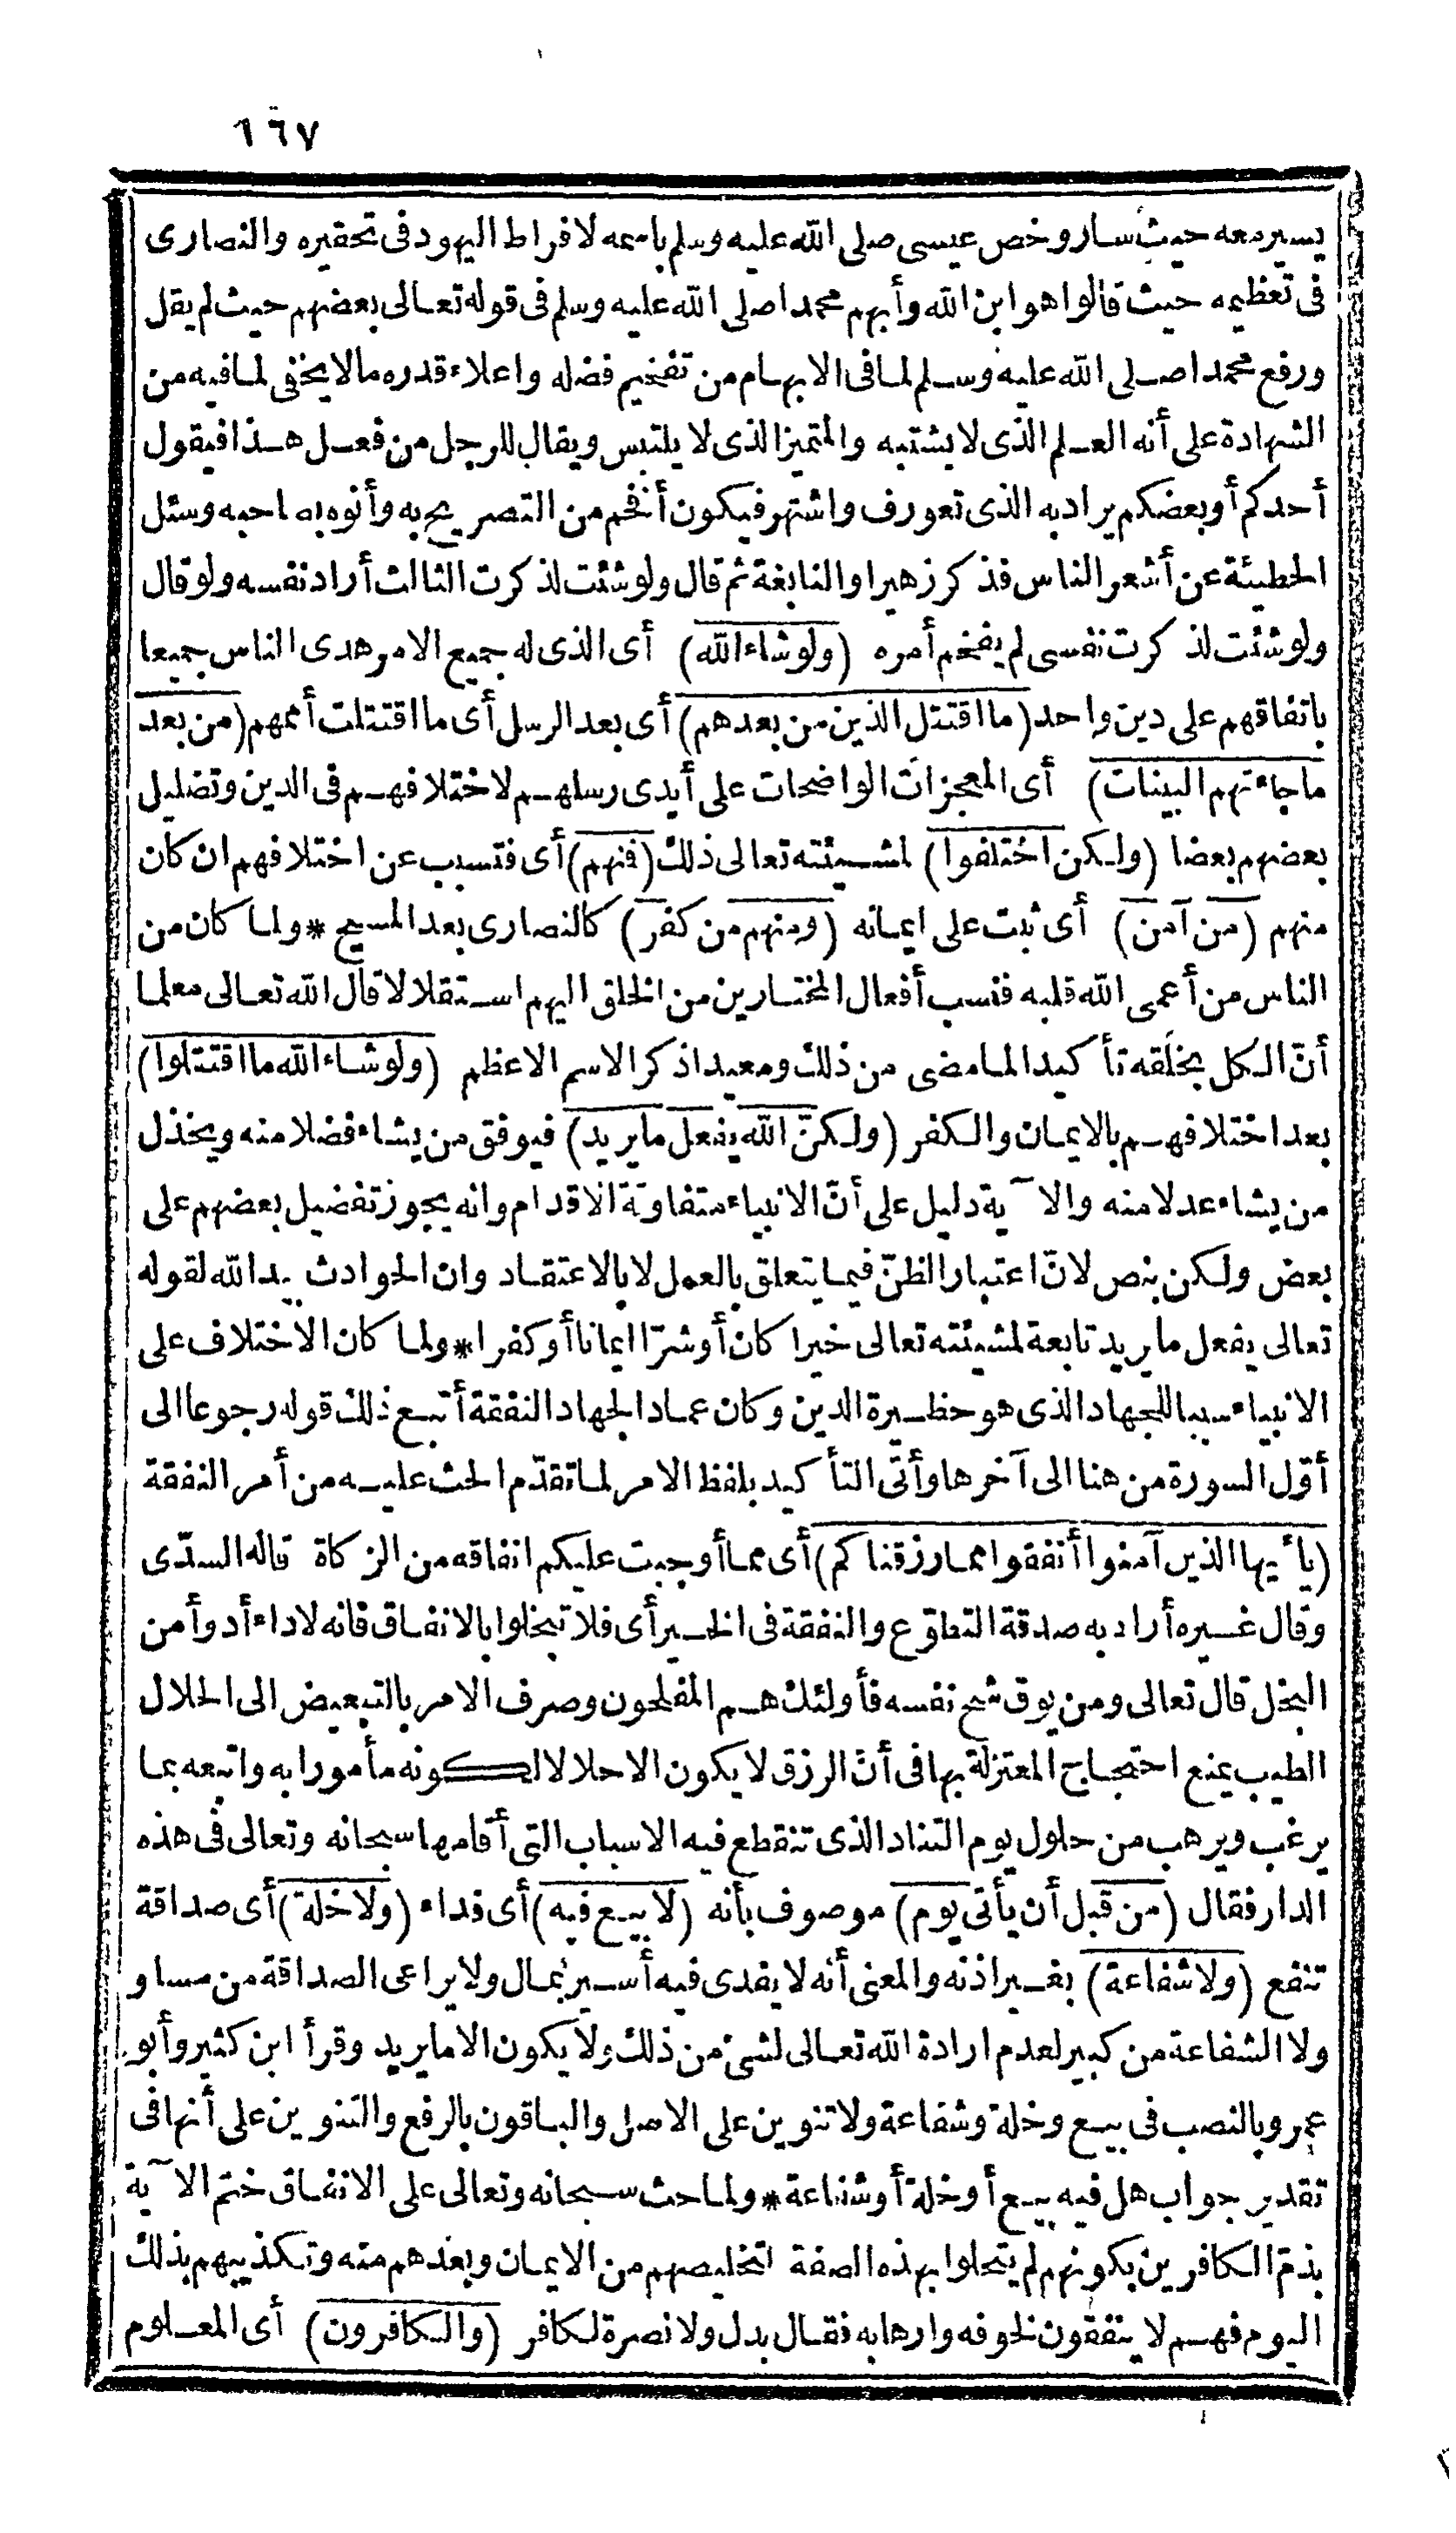 ١٦٧
يسير معه حيث سار وخص عيسى صلى الله عليه وسلم باسمه لافراط اليهود فى تحقيره والنصارى
فى تعظيمه حيث قالوا هو ابن الله وأبهم محمدا صلى الله عليه وسلم فى قوله تعالى بعضهم حيث لم يقل
ورفع محمدا صلى الله عليه وسلم لما فى الابهام من تفخيم فضله واعلاء قدره مالا يخفى لما فيه من
الشهادة على أنه العلم الذى لا يشتبه والمتميز الذى لا يلتبس ويقال للرجل من فعل هذا فيقول
أحدكم أو بعضكم يراد به الذى تعورف واشتهر فيكون أفخم من التصريح به وأنوه بصاحبه وسئل
الحطيئة عن أشعر الناس فذكر زهيرا والنابغة ثم قال ولو شئت لذكرت الثالث أراد نفسه ولو قال
ولو شئت لذكرت نفسى لم يفخم أمره (ولو شاء الله) أى الذى له جميع الامر هدى الناس جميعا
باتفاقهم على دين واحد (ما اقتتل الذين من بعدهم) أى بعد الرسل أى ما اقتتلت أممهم (من بعد
ما جاءتهم البينات) أى المعجزات الواضحات على أيدى رسلهم لاختلافهم فى الدين وتضليل
بعضهم بعضا (ولكن اختلفوا) لمشيئته تعالى ذلك (فمنهم) أى فتسبب عن اختلافهم ان كان
منهم (من آمن) أى ثبت على ايمانه (ومنهم من كفر) كالنصارى بعد المسيح * ولما كان من
الناس من أعمى الله قلبه فنسب أفعال المختارين من الخلق اليهم استقلالا قال الله تعالى معلما
أنّ الكل بخلقه تأكيدا لما مضى من ذلك ومعيدا ذكر الاسم الاعظم (ولو شاء الله ما اقتتلوا)
بعد اختلافهم بالايمان والكفر (ولكنّ الله يفعل ما يريد) فيوفق من يشاء فضلا منه ويخذل
من يشاء عدلا منه والآية دليل على أنّ الانبياء متفاوتة الاقدام وانه يجوز تفضيل بعضهم على
بعض ولكن بنص لانّ اعتبار الظنّ فيما يتعلق بالعمل لا بالاعتقاد وان الحوادث بيد الله لقوله
تعالى يفعل ما يريد تابعة لمشيئته تعالى خيرا كان أو شرّا ايمانا أو كفرا * ولما كان الاختلاف على
الانبياء سببا للجهاد الذى هو حظيرة الدين وكان عماد الجهاد النفقة أتبع ذلك قوله رجوعا الى
أوّل السورة من هنا الى آخرها وأتى التأكيد بلفظ الامر لما تقدّم الحث عليه من أمر النفقة
(يا أيها الذين آمنوا أنفقوا مما رزقناكم) أى مما أوجبت عليكم انفاقه من الزكاة قاله السدّى
وقال غيره أراد به صدقة التطوّع والنفقة فى الخير أى فلا تبخلوا بالانفاق فانه لا داء أدوأ من
البخل قال تعالى ومن يوق شح نفسه فأولئك هم المفلحون وصرف الامر بالتبعيض الى الحلال
الطيب يمنع احتجاج المعتزلة بها فى أنّ الرزق لا يكون الا حلالا لكونه مأمورا به واتبعه بما
يرغب ويرهب من حلول يوم التناد الذى تنقطع فيه الاسباب التى أقامها سبحانه وتعالى فى هذه
الدار فقال (من قبل أن يأتى يوم) موصوف بأنه (لا بيع فيه) أى فداء (ولا خلة) أى صداقة
تنفع (ولا شفاعة) بغير اذنه والمعنى أنه لا يفدى فيه أسير بمال ولا يراعى الصداقة من مساو
ولا الشفاعة من كبير لعدم ارادة الله تعالى لشئ من ذلك ولا يكون الا ما يريد وقرأ ابن كثير وأبو
عمرو بالنصب فى بيع وخلة وشفاعة ولا تنوين على الاصل والباقون بالرفع والتنوين على أنها فى
تقدير جواب هل فيه بيع أو خلة أو شفاعة * ولما حث سبحانه وتعالى على الانفاق ختم الآية
بذمّ الكافرين بكونهم لم يتحلوا بهذه الصفة لتخليصهم من الايمان وبعدهم منه وتكذيبهم بذلك
اليوم فهم لا ينفقون لخوفه وارهابه فقال بدل ولا نصرة لكافر (والكافرون) أى المعلوم